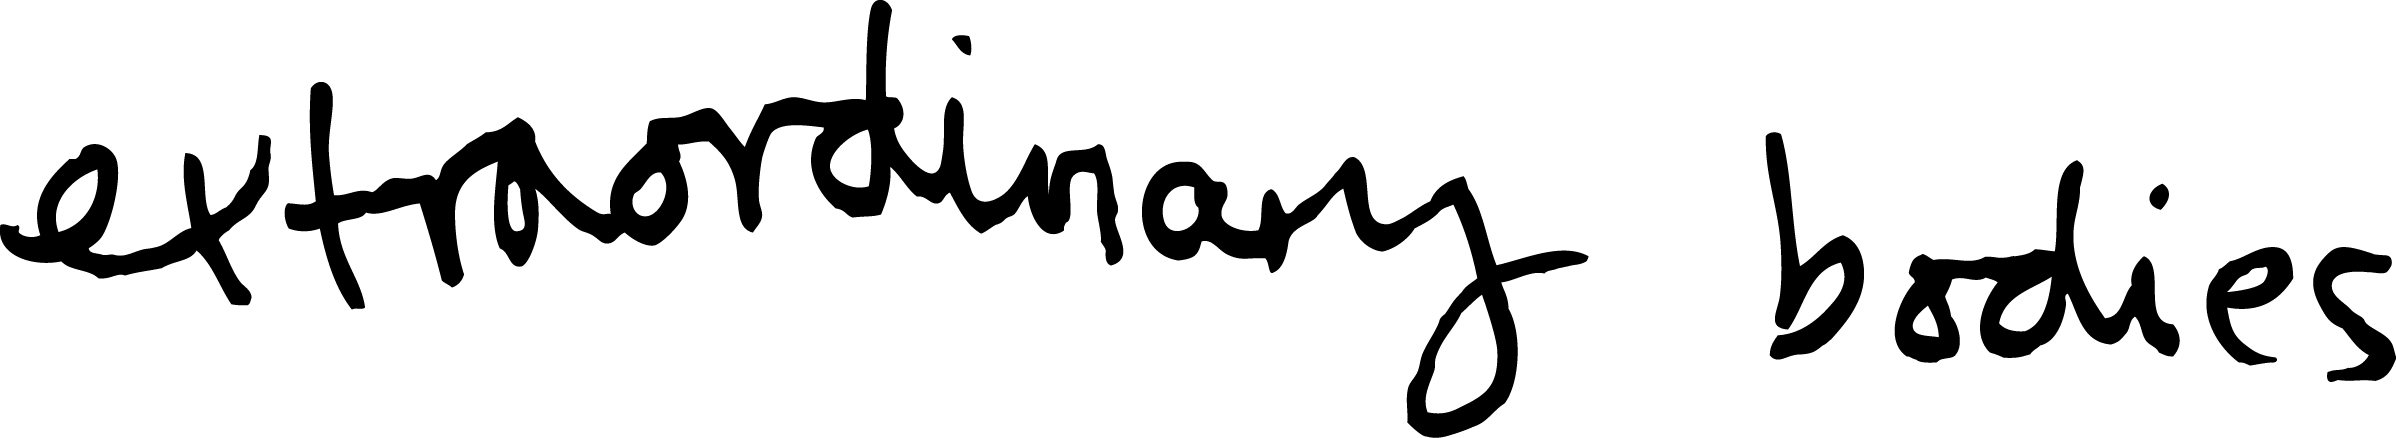 extraordinary bodies